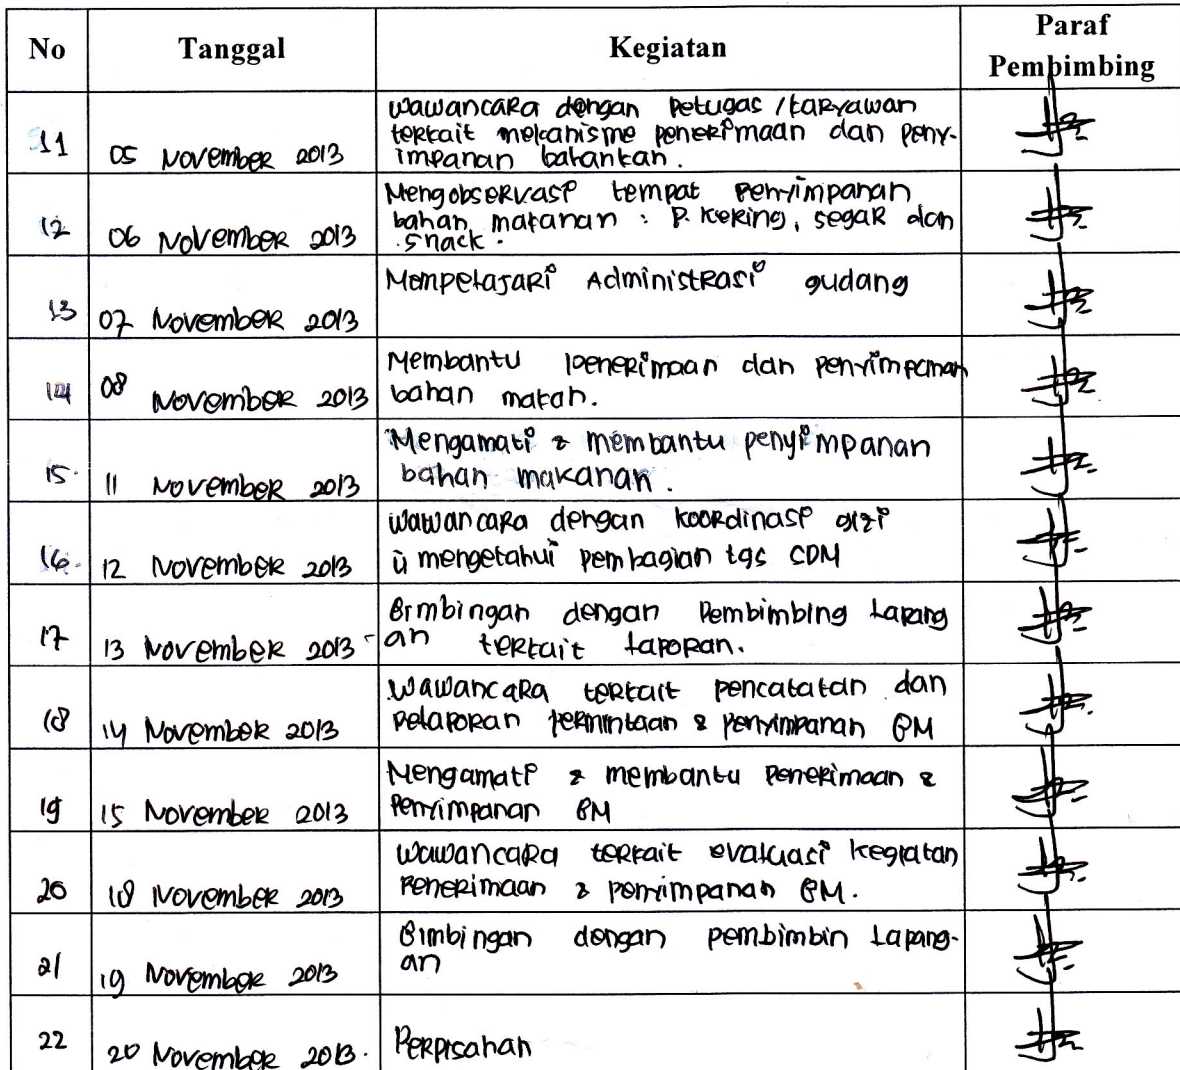 No Tanggal Kegiatan Paraf Pembimbing
11 05 November 2013 wawancara dengan petugas / karyawan
terkait mekanisme penerimaan dan peny-
impanan bahankan.
12 06 November 2013 Mengobservasi tempat penyimpanan
bahan makanan : P. kering, segar dan
snack.
13 07 November 2013 Mempelajari Administrasi gudang
14 08 November 2013 Membantu penerimaan dan penyimpanan
bahan makan.
15. 11 November 2013 Mengamati & membantu penyimpanan
bahan makanan.
16. 12 November 2013 wawancara dengan koordinasi gizi
ü mengetahui pembagian tgs SDM
17 13 November 2013 Bimbingan dengan Pembimbing Lapang
an terkait laporan.
18 14 November 2013 Wawancara terkait pencatatan dan
pelaporan permintaan & penyimpanan BM
19 15 November 2013 Mengamati & membantu penerimaan &
penyimpanan BM
20 18 November 2013 Wawancara terkait evaluasi kegiatan
Penerimaan & penyimpanan BM.
21 19 November 2013 Bimbingan dengan pembimbin Lapang-
an
22 20 November 2013. Perpisahan